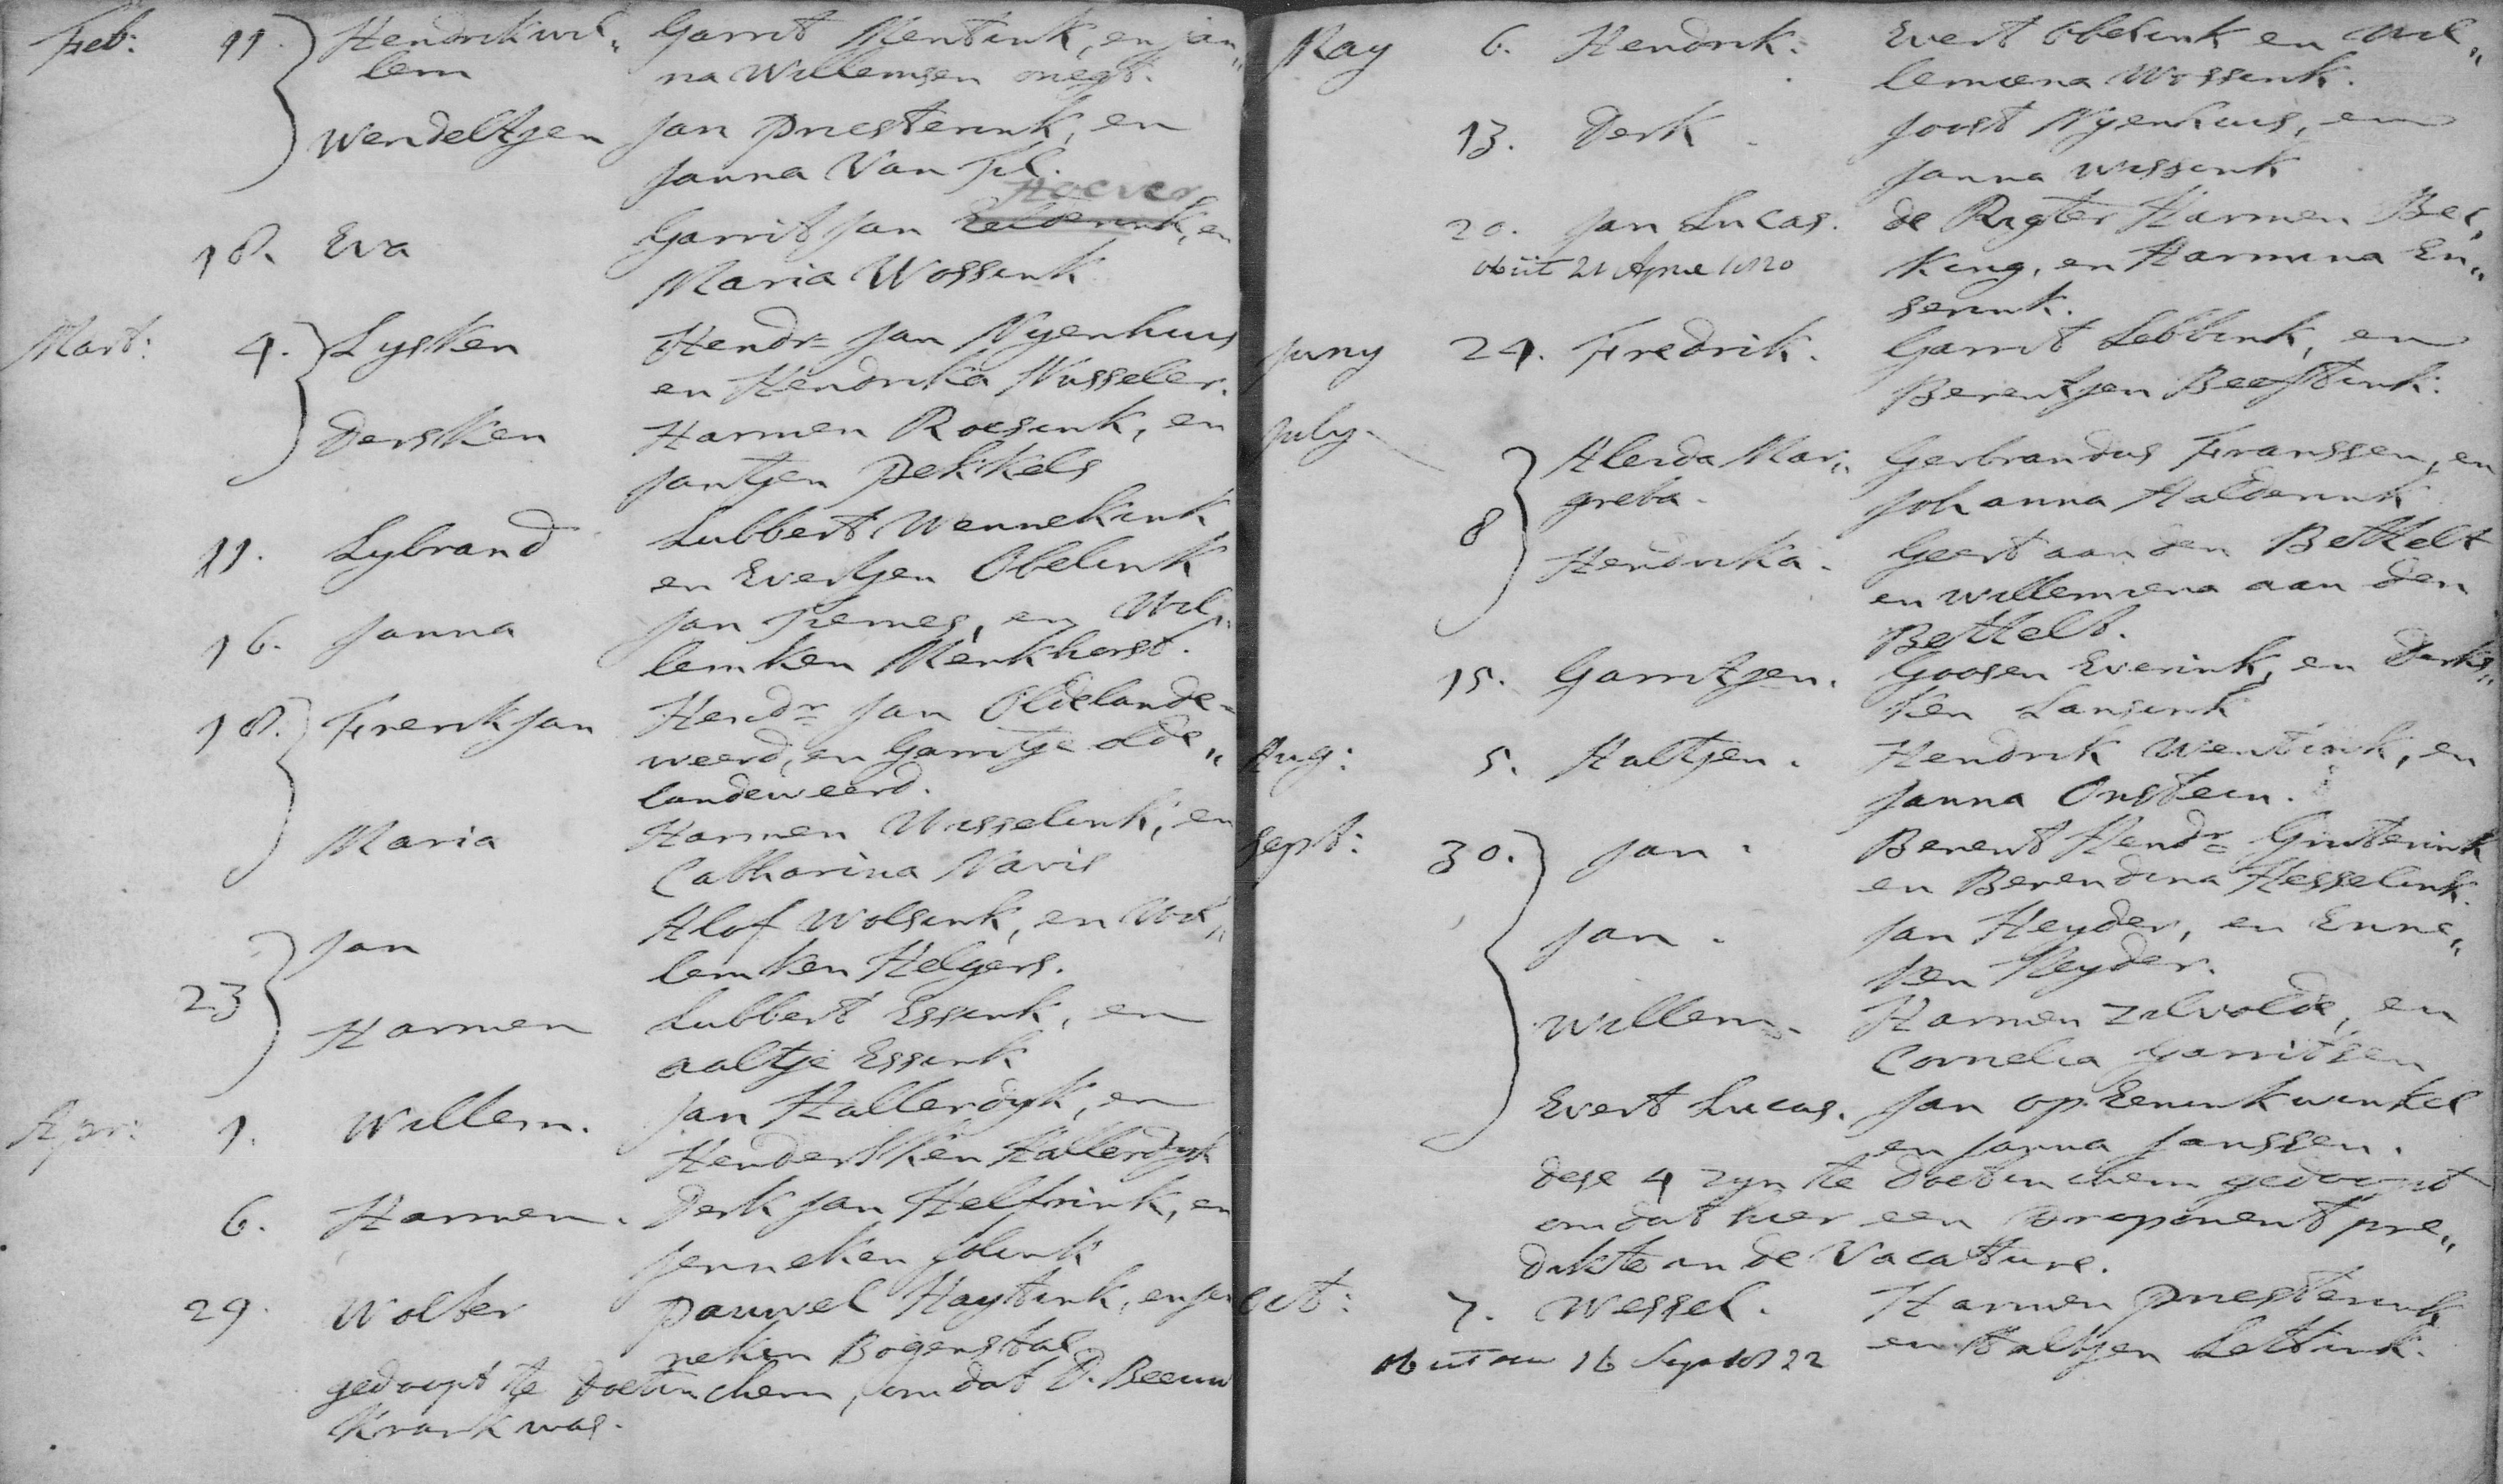 Feb: 11. Hendrik wil„ Garrit Mentink, en jan„
lem na Willemsen onegt.
Wendeltjen Jan Priesterink, en
Janna Van Til.
Hoever
18. Eva Garrit Jan Eelderink, en
Maria Wossink
Mart: 4. Lysken Hendr= Jan Nyenhuis
en Hendrika Wisseler.
Dersken Harmen Roesink, en
Jantjen Pekkels
11. Sybrand Lubbert Wennekink
en Evertjen Obelink
16. Janna Jan Remes, en Wil„
lemken Menkhorst.
18. Frerik Jan Hendr= Jan Oldelande=
weerd, en Garritje olde„
landeweerd.
Maria Harmen Wisselink, en
Catharina Navis
Jan Alof Wolsink, en Wil„
lemken Helgers.
23
Harmen Lubbert Essink, en
aaltje Essink
Apr: 1. Willem. Jan Hallerdyk, en
Hendersken Hallerdyk
6. Harmen. Derk Jan Helfrink, en
Jenneken Jolink
29. Wolter Pauwel Haytink, en Jen
neken Bogenstal
gedoopt te Doetinchem, omdat D. Beeuw
krank was.
May 6. Hendrik. Evert Obelink en Wil„
lemiena Wossink.
13. Derk Joost Nyenhuis, en
Janna Wissink
20. Jan Lucas. de Rigter Harmen Bec„
obiit 21 April 1820 king, en Harmina En„
serink.
Juny 24. Fredrik. Garrit Lebbink, en
Berentjen Beeftink.
July
Alerda Mar„ Gerbrandus Franssen, en
greta. Johanna Halderink
8
Hendrika. Geert aan den Bethelt
en Willemiena aan den
Bethelt.
15. Garritjen. Goosen Everink, en Ders„
ken Lansink
Aug: 5. Aaltjen. Hendrik Wentink, en
Janna Onstein.
Sept: 30. Jan. Berent Hendr= Gruterink
en Berendina Hesselink.
Jan. Jan Heyder, en Enne„
ken Heyder.
Willem. Harmen Zilvolde, en
Cornelia Garritsen
Evert Lucas. Jan op Eenink winkel
en Janna Janssen.
dese 4 zyn te Doetinchem gedoopt
omdat hier een Proponent pre„
dikte in de Vacature.
Oct: 7. Wessel. Harmen Priesterink
obiit 16 Sept 1822 en Aaltjen Lettink.